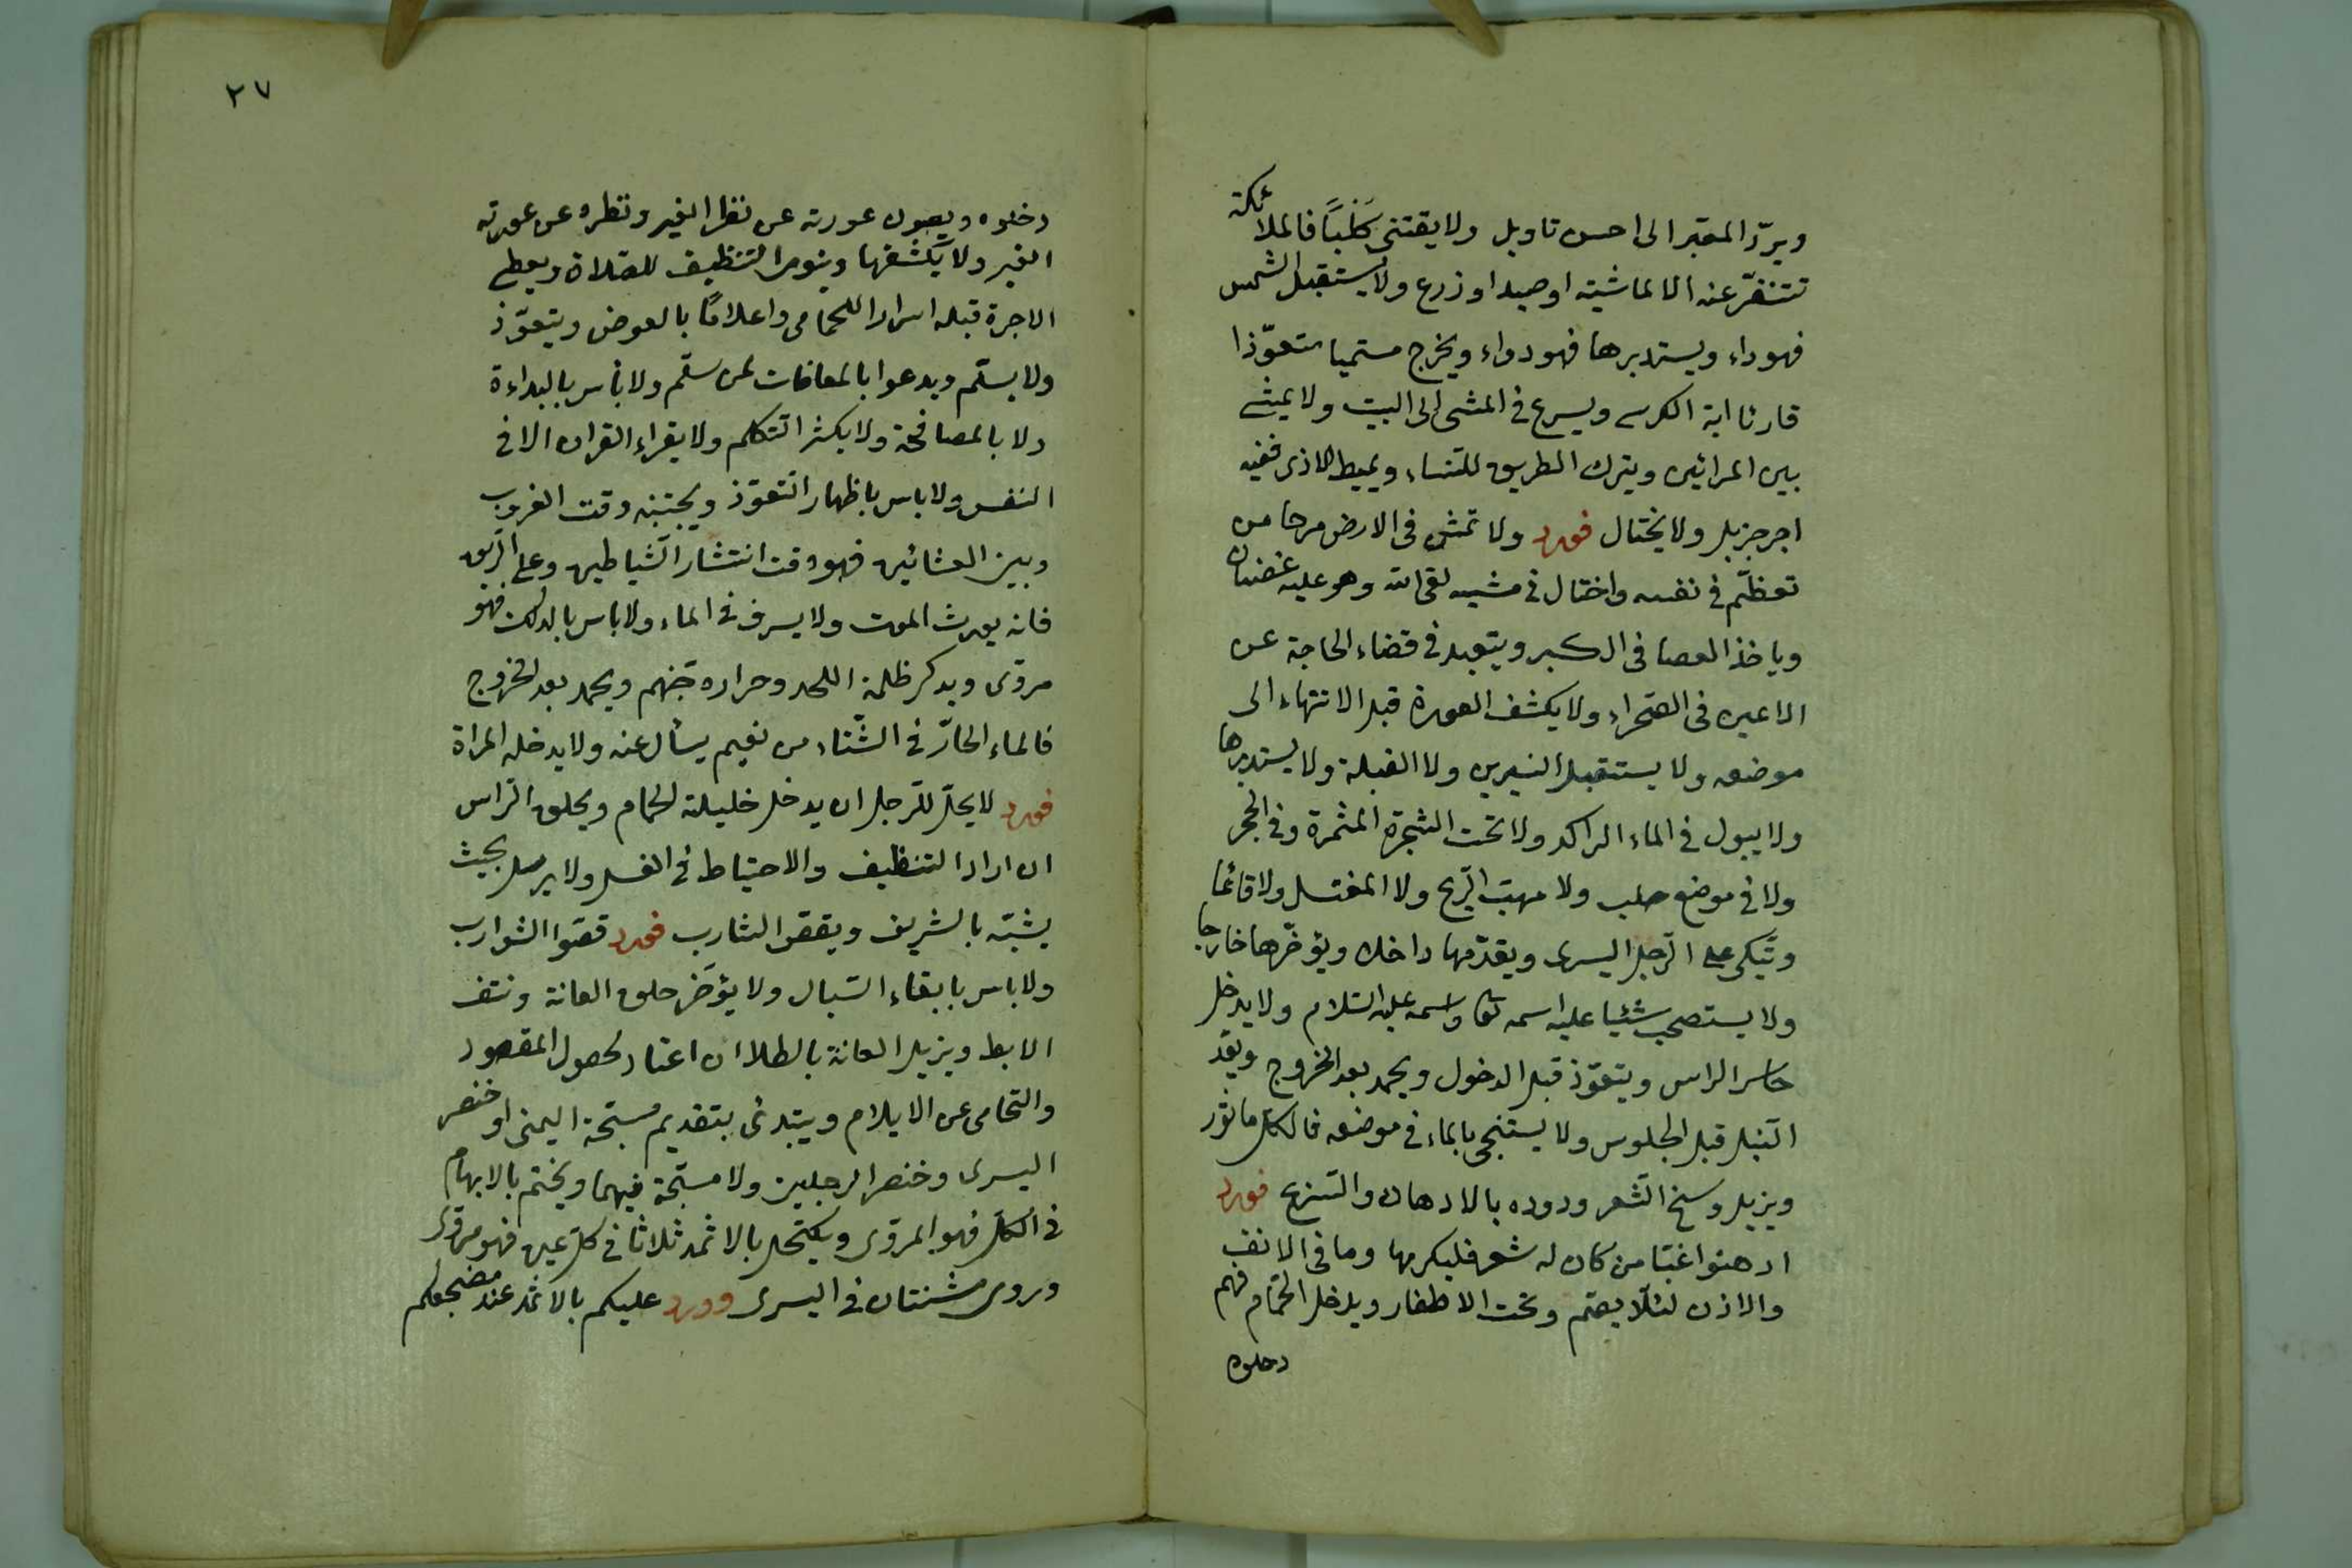 ويردّ المقبر الى احسن تاويل ولا يقتنى كلبًا فالملائكة
تتنفّر عنه الا لماشية او صيد او زرع ولا يستقبل الشمس
فهو داء ويستدبرها فهو دواء ويخرج مسميا متعوّذا
قارئا اية الكرسى ويسرع فى المشى الى البيت ولا يمشى
بين المراتين ويترك الطريق للنساء ويميط الاذى ففيه
اجر جزيل ولا يختال فورد ولا تمش فى الارض مرحا من
تعظّم فى نفسه واختال فى مشيه لقى الله وهو عليه غضبان
وياخذ العصا فى الكبر ويتبعد فى قضاء الحاجة عن
الاعين فى الصّحراء ولا يكشف العورة قبل الانتهاء الى
موضعه ولا يستقبل النيرين ولا القبلة ولا يستدبرها
ولا يبول فى الماء الراكد ولا تحت الشجرة المثمرة وفى الجحر
ولا فى موضع صلب ولا مهبّ الرّيح ولا المغتسل ولا قائما
وتّكى على الرّجل اليسرى ويقدّمها داخلا ويؤخّرها خارجا
ولا يستصحب شيئا عليه اسمه تعالى واسمه عليه السّلام ولا يدخل
حاسر الراس ويتعوّذ قبل الدخول ويحمد بعد الخروج ويعدّ
النّبل قبل الجلوس ولا يستنجى بالماء فى موضعه فالكل ماثور
ويزيل وسخ الشّعر ودوده بالادهان والتسريح فورد
ادهنوا غبّا من كان له شعر فليكرمها وما فى الانف
والاذن لئلّا يصمّ وتحت الاظفار ويدخل الحمّام فهم
دخلوه
٢٧
دخلوه ويصون عورته عن نظر الغير ونظره عن عورته
الغير ولا يكشفها وينوى التنظيف للصّلاة ويعطى
الاجرة قبله اسرارا للحمامى واعلامًا بالعوض ويتعوّذ
ولا يسلّم ويدعوا بالمعافات لمن سلّم ولا بأس بالبداءة
ولا بالمصافحة ولا يكثر التكلم ولا يقراء القران الا فى
النفس ولا باس باظهار التعوّذ ويجتنبه وقت الغروب
وبين العشائين فهو وقت انتشار الشّياطين وعلى الرّيق
فانه يورث الموت ولا يسرف فى الماء ولا باس بالدلك فهو
مروّى ويدكر ظلمة اللحد وحراره جهنّم ويحمد بعد الخروج
فالماء الحارّ فى الشّتاء من نعيم يسأل عنه ولا يدخله المراة
فورد لا يحلّ للرّجل ان يدخل خليلته الحمام ويحلق الرّاس
ان اراد التنظيف والاحتياط فى الغسل ولا يرسل بحيث
يشبّه بالشريف ويقصّ الشارب فورد قصّوا الشوارب
ولا باس بابقاء السّبال ولا يؤخّر حلق العانة ونتف
الابط ويزيل العانة بالطلا ان اعتاد لحصول المقصود
والتحامى عن الايلام ويبتدئ بتقديم مسبّحة اليمنى او خنصر
اليسرى وخنصر الرجلين ولا مسبّحة فيهما ويختم بالابهام
فى الكلّ فهو المروّى ويكتحل بالاثمد ثلاثا فى كلّ عين فهو مروّى
وروى ثنتان فى اليسرى وورد عليكم بالاثمد عند مضجعكم